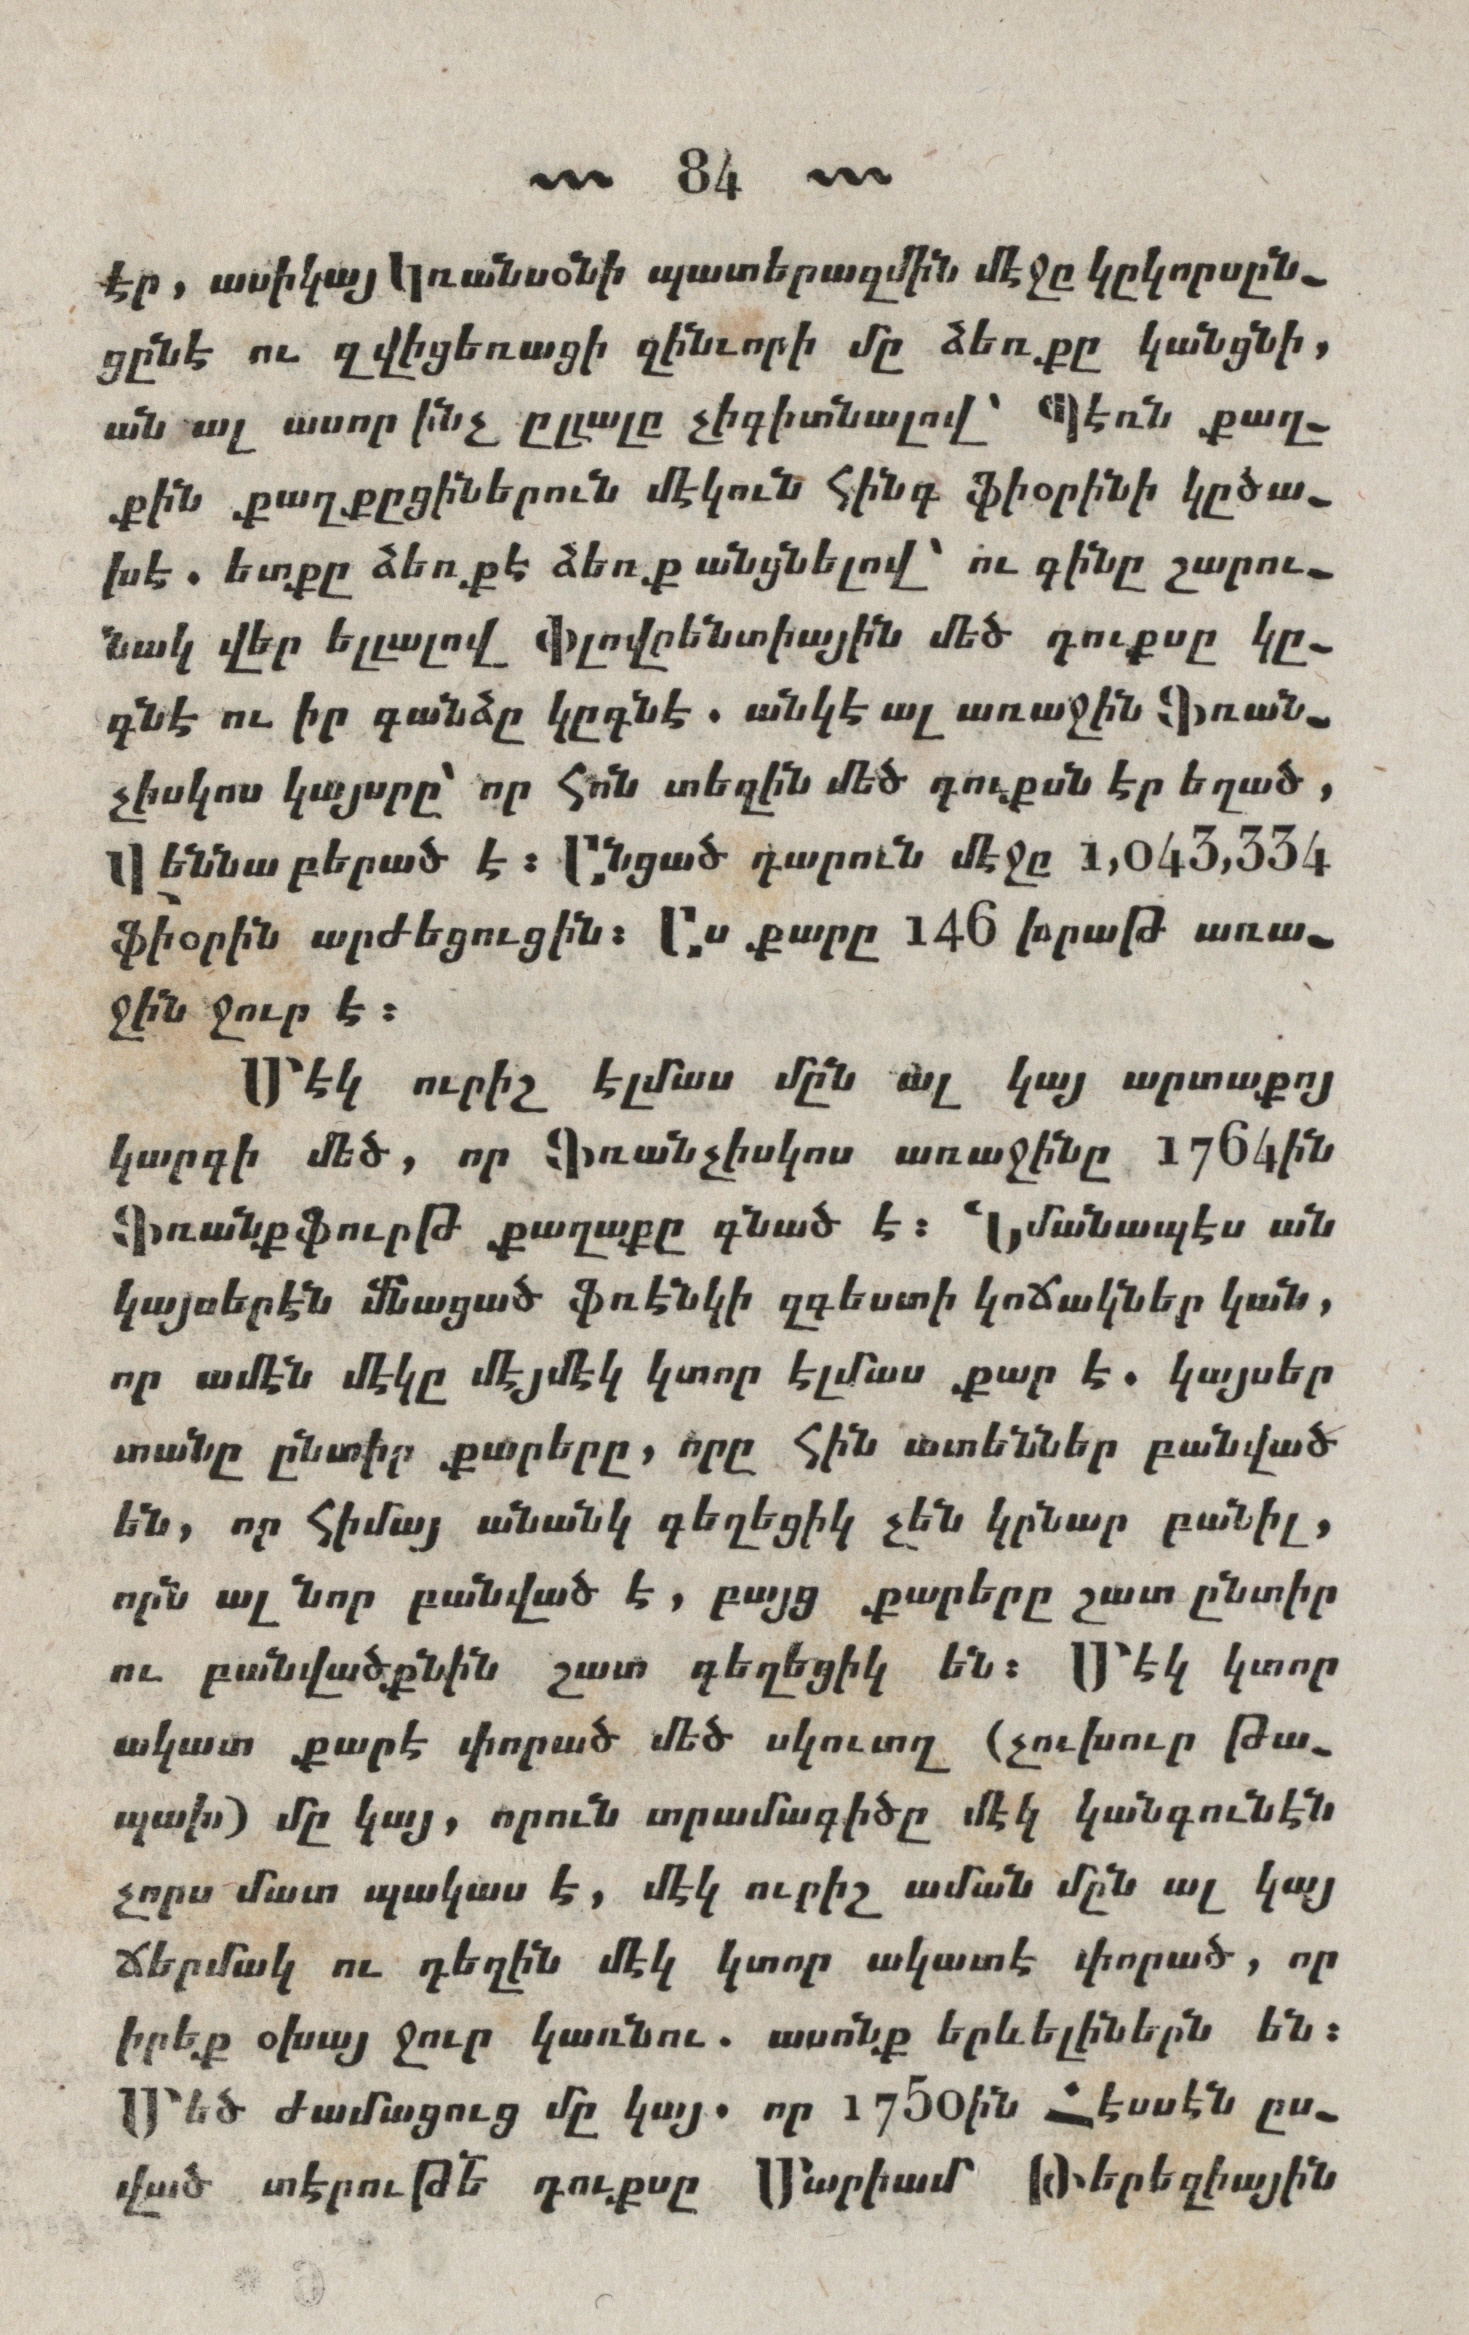 84
էր, ասիկայ Կռանսօնի պատերազմին մէջը կըկորսըն-
ցընէ ու զվիցեռացի զինւորի մը ձեռքը կանցնի,
ան ալ ասոր ինչ ըլլալը չիգիտնալով՝ Պէռն քաղ-
քին քաղքըցիներուն մէկուն հինգ ֆիօրինի կըծա-
խէ. ետքը ձեռքէ ձեռք անցնելով՝ ու գինը շարու-
նակ վեր ելլալով Փլովրենտիային մեծ դուքսը կը-
գնէ ու իր գանձը կըդնէ. անկէ ալ առաջին Ֆռան-
չիսկոս կայսրը՝ որ հոն տեղին մեծ դուքսն էր եղած,
Վեննա բերած է։ Անցած դարուն մէջը 1,043,334
ֆիօրին արժեցուցին։ Աս քարը 146 խրաթ առա-
ջին ջուր է։
Մէկ ուրիշ էլմաս մըն ալ կայ արտաքոյ
կարգի մեծ, որ Ֆռանչիսկոս առաջինը 1764ին
Ֆռանքֆուրթ քաղաքը գնած է։ Նմանապէս ան
կայսերէն մնացած ֆռէնկի զգեստի կոճակներ կան,
որ ամէն մէկը մէյմէկ կտոր էլմաս քար է. կայսեր
տանը ընտիր քարերը, որը հին ատեններ բանված
են, որ հիմայ անանկ գեղեցիկ չեն կրնար բանիլ,
որն ալ նոր բանված է, բայց քարերը շատ ընտիր
ու բանվածքնին շատ գեղեցիկ են։ Մէկ կտոր
ակատ քարէ փորած մեծ սկուտղ (չուխուր թա-
պախ) մը կայ, որուն տրամագիծը մէկ կանգունէն
չորս մատ պակաս է, մէկ ուրիշ աման մըն ալ կայ
ճերմակ ու դեղին մէկ կտոր ակատէ փորած, որ
իրեք օխայ ջուր կառնու. ասոնք երևելիներն են։
Մեծ ժամացուց մը կայ. որ 1750ին Հէսսէն ըս-
ված տէրութե՟ դուքսը Մարիամ Թերեզիային